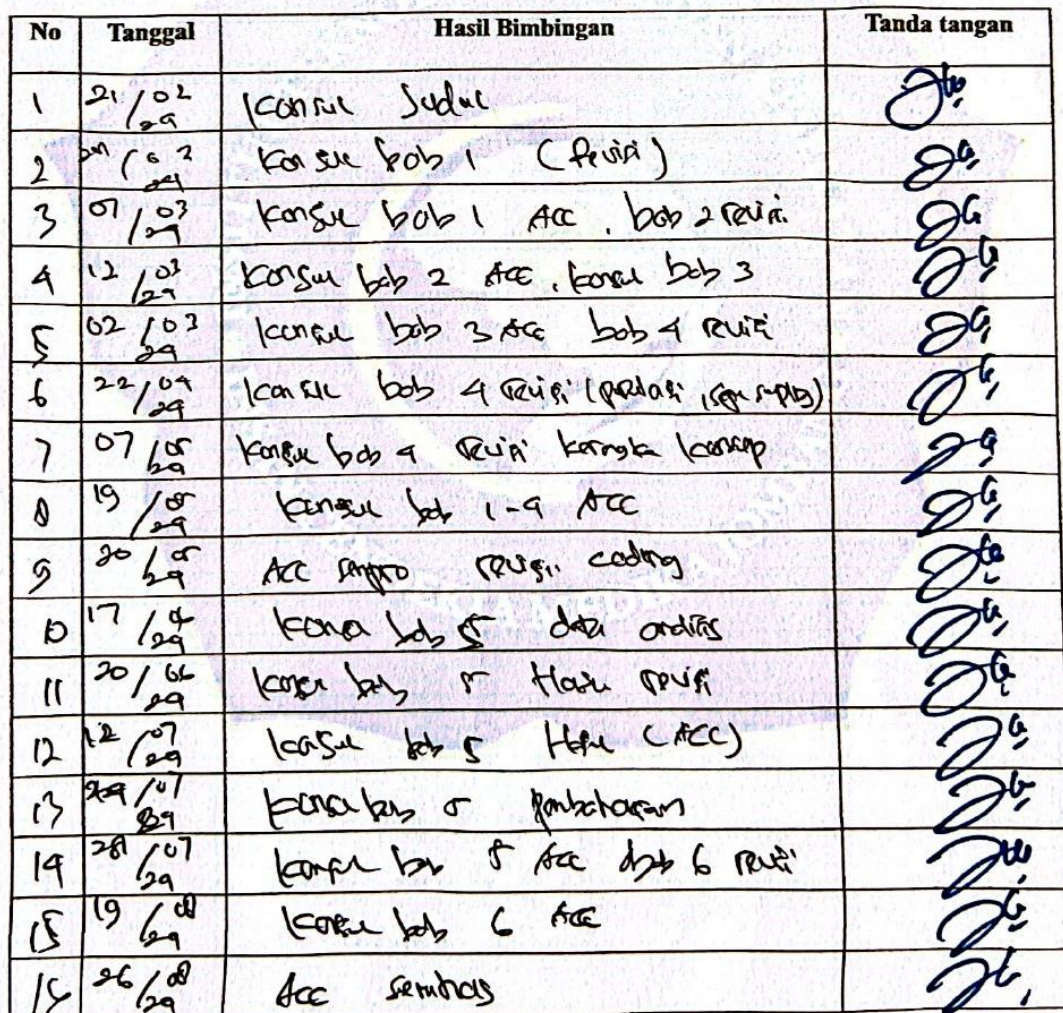 No Tanggal Hasil Bimbingan Tanda tangan
1 21/02 24 Konsul Judul
2 02 24 Konsul bab 1 (Revisi)
3 07/03 24 Konsul bab 1 Acc, bab 2 revisi
4 12/03 24 Konsul bab 2 Acc, konsul bab 3
5 02/03 24 Konsul bab 3 Acc bab 4 revisi
6 22/04 24 Konsul bab 4 revisi
7 07/05 24 Konsul bab 4 revisi kerangka konsep
8 19/05 24 Konsul bab 1-4 Acc
9 20/05 24 Acc sempro revisi coding
10 17 24 Konsul bab 5 data analisis
11 20/06 24 Konsul bab 5 Hasil revisi
12 12/07 24 Konsul bab 5 Hasil (Acc)
13 07 24 Konsul bab 5 pembahasan
14 07 24 Konsul bab 5 Acc bab 6 revisi
15 19/08 24 Konsul bab 6 Acc
26/08 24 Acc semhas